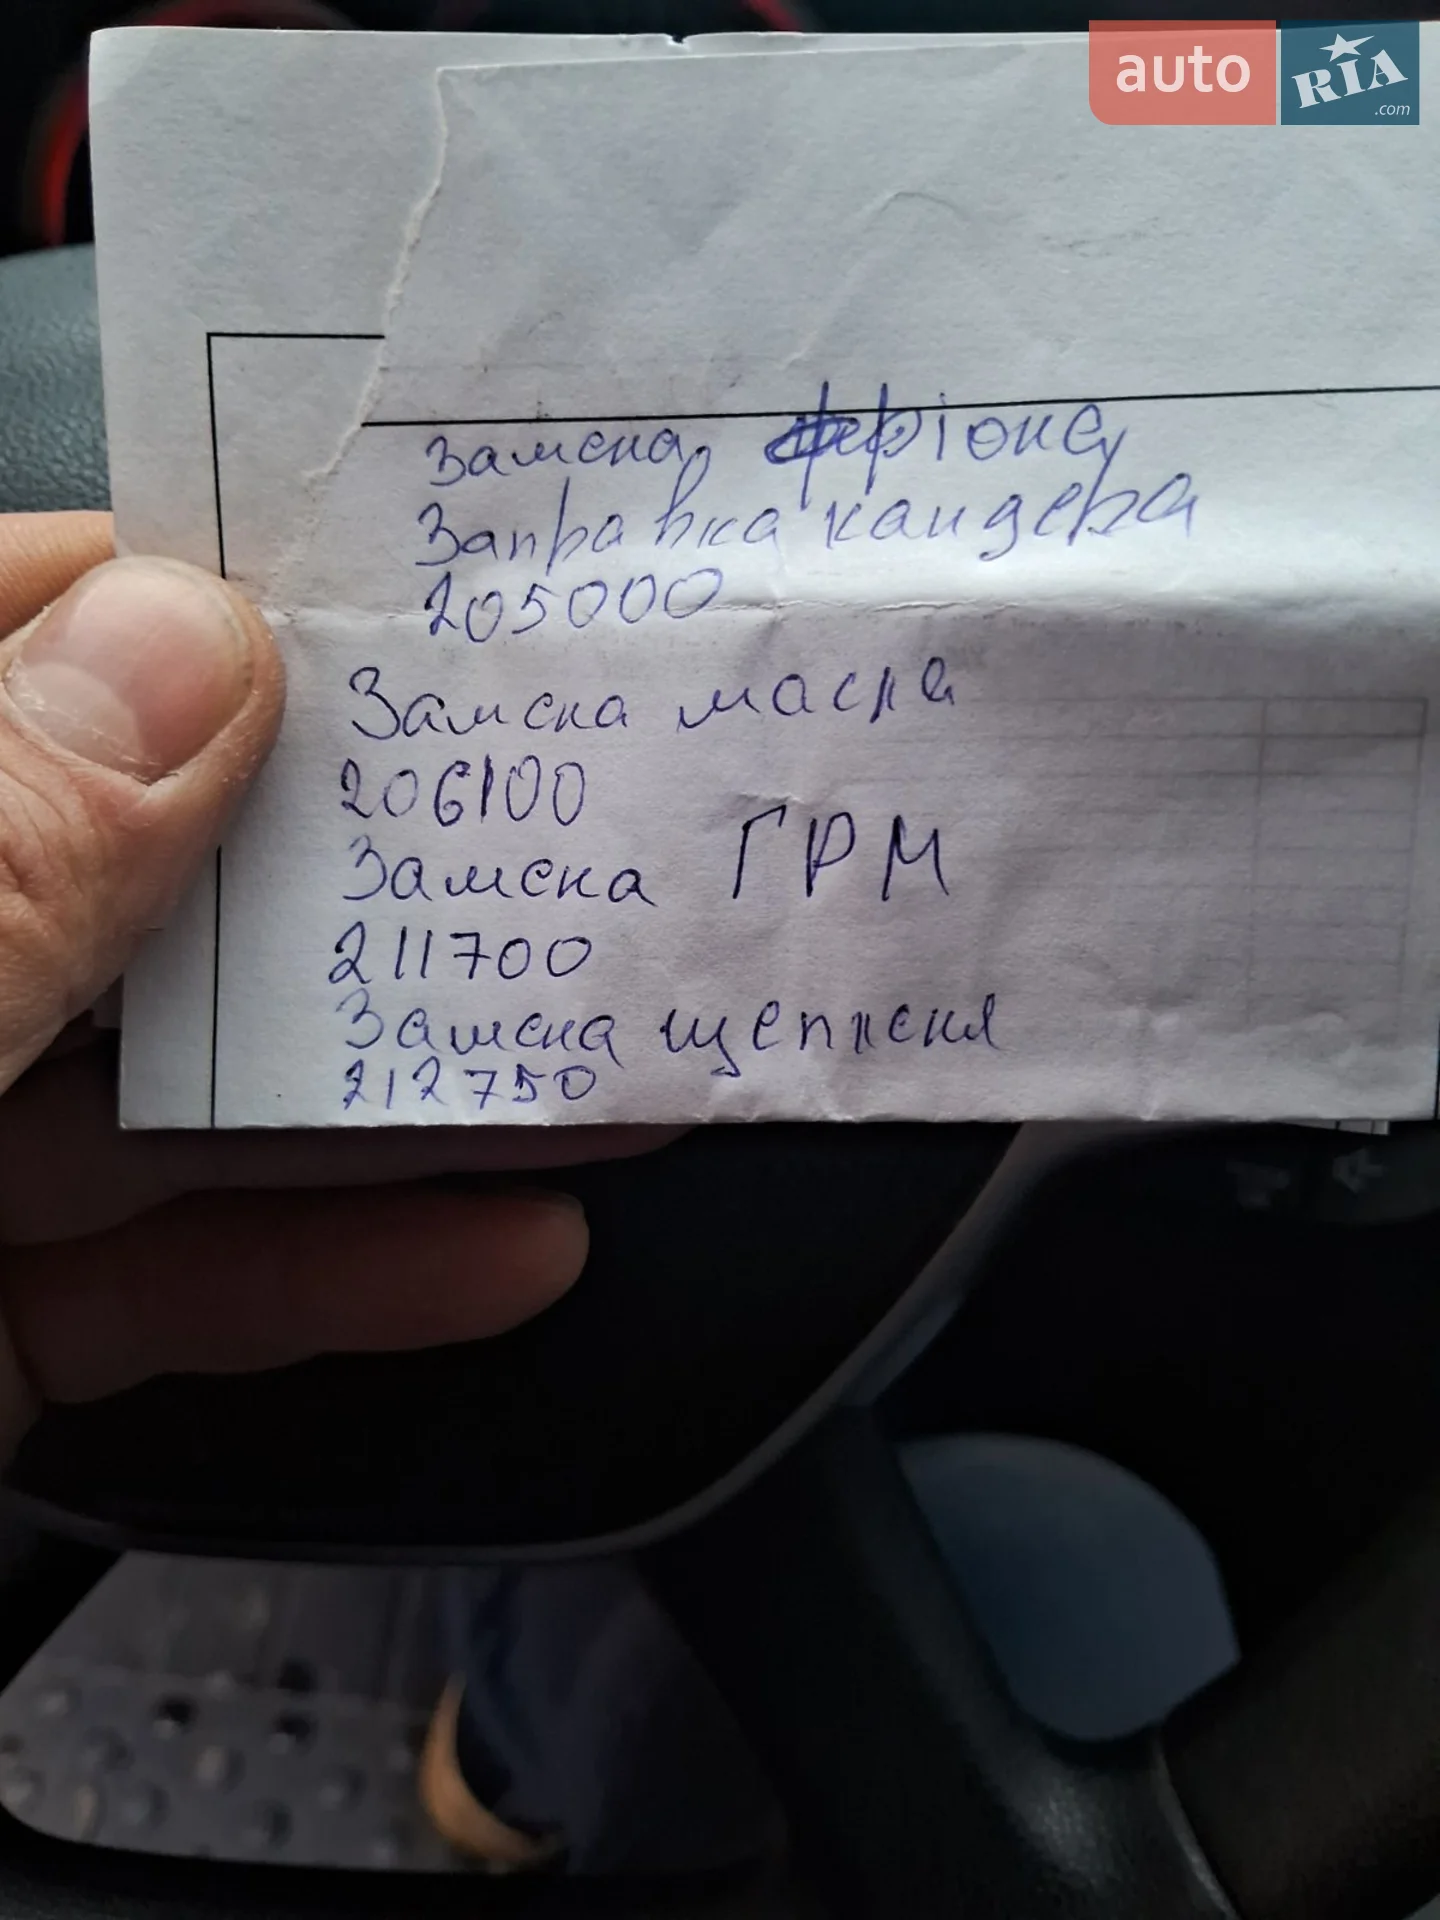 auto RIA .com
Замена фріону
Заправка кандера
205000
Замена масла
206100
Замена ГРМ
211700
Замена щепления
212750